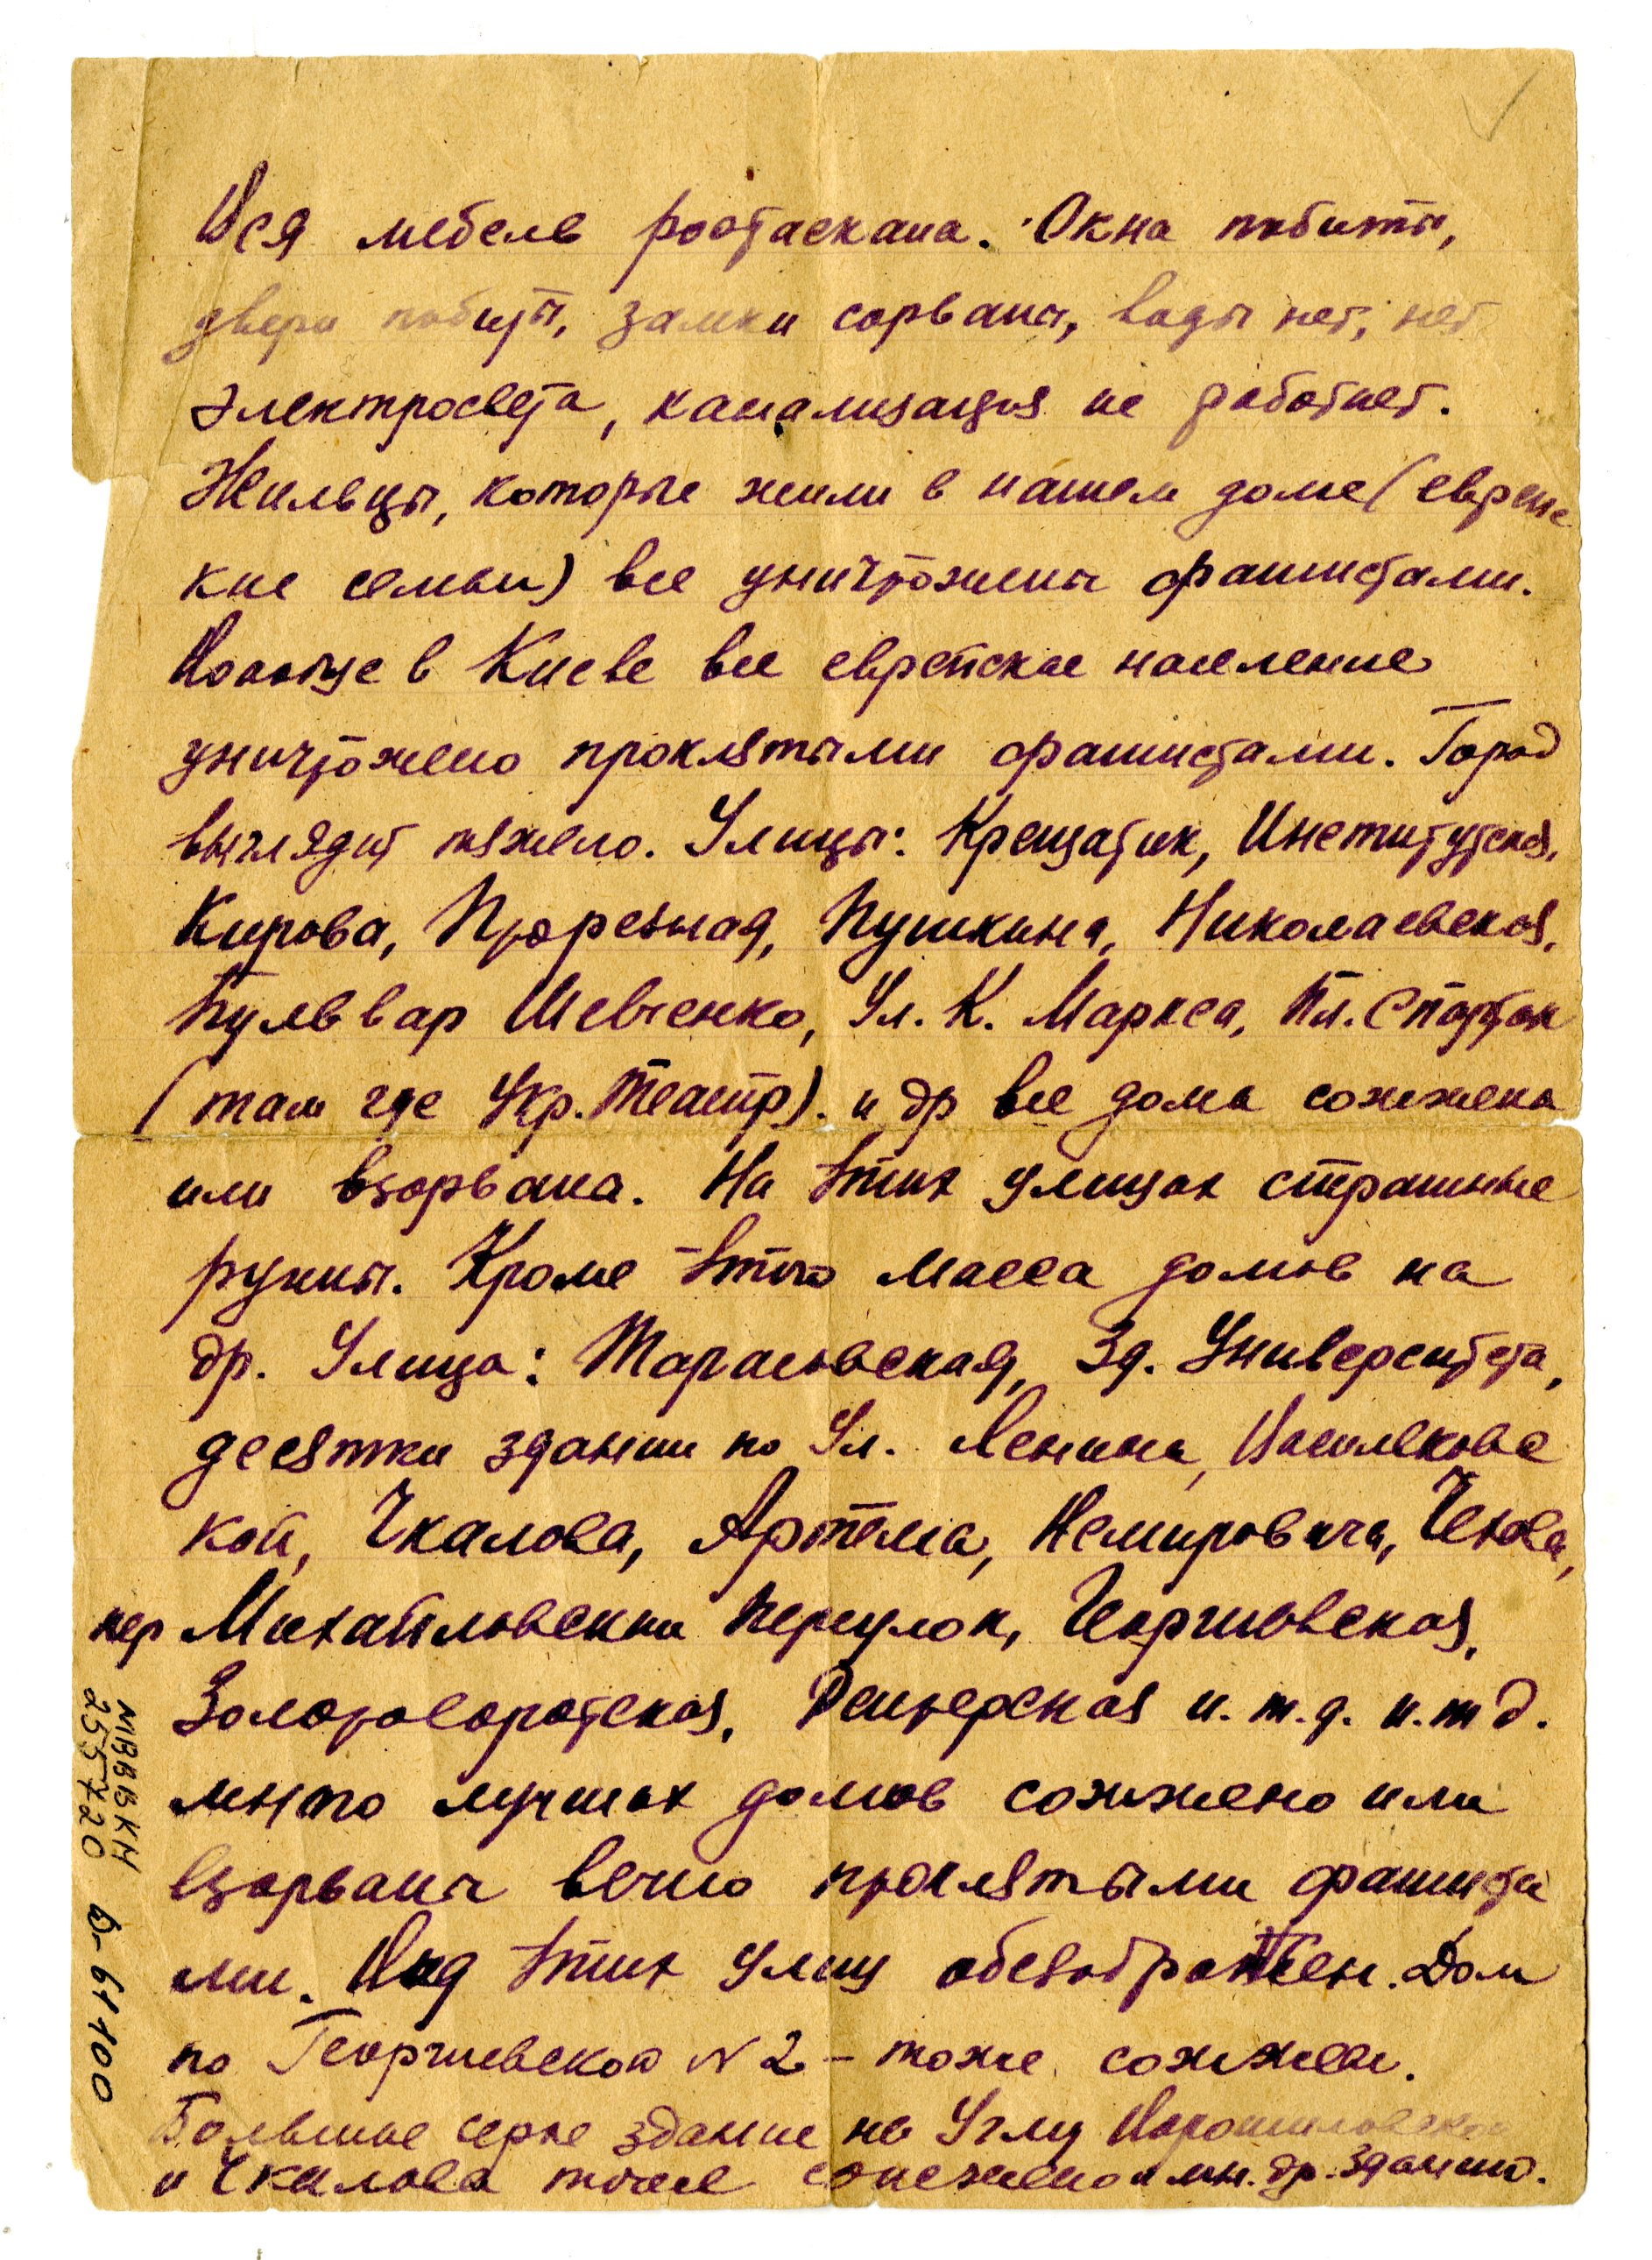 Вся мебель ростаскана. Окна побиты,
двери побиты, замки сорваны, воды нет, нет
электросвета, канализация не работает.
Жильцы, которые жили в нашем доме (еврейс
кие семьи) все уничтожены фашистами.
Вообще в Киеве все еврейское население
уничтожено проклятыми фашистами. Город
выглядит тяжело. Улицы: Крещатик, Институтская,
Кирова, Прорезная, Пушкина, Николаевская,
Бульвар Шевченко, Ул. К. Маркса, Пл. Спартак
(там где Укр. Театр). и др все дома сожжена
или взорвана. На этих улицах страшные
руины. Кроме этого масса домов на
др. Улица: Тарасовская, Зд. Университета,
десятки здании по Ул. Ленина, Васильковс
кой, Чкалова, Артема, Немировича, Чехова,
пер Михайловскии переулок, Георгиевская,
Золотоворотская, Рейтерская и.т.д. и.т д.
много лучших домов сожжено или
взорваны вечно проклятыми фашиста
ми. Вид этих Улиц обезображен. Дом
по Георгиевской N 2 – тоже сожжен.
Большое серое здание на Углу Ворошиловской
и Чкалова тоже сожжено и мн. др. зданий.
МВВВКМ
255720 д-61100